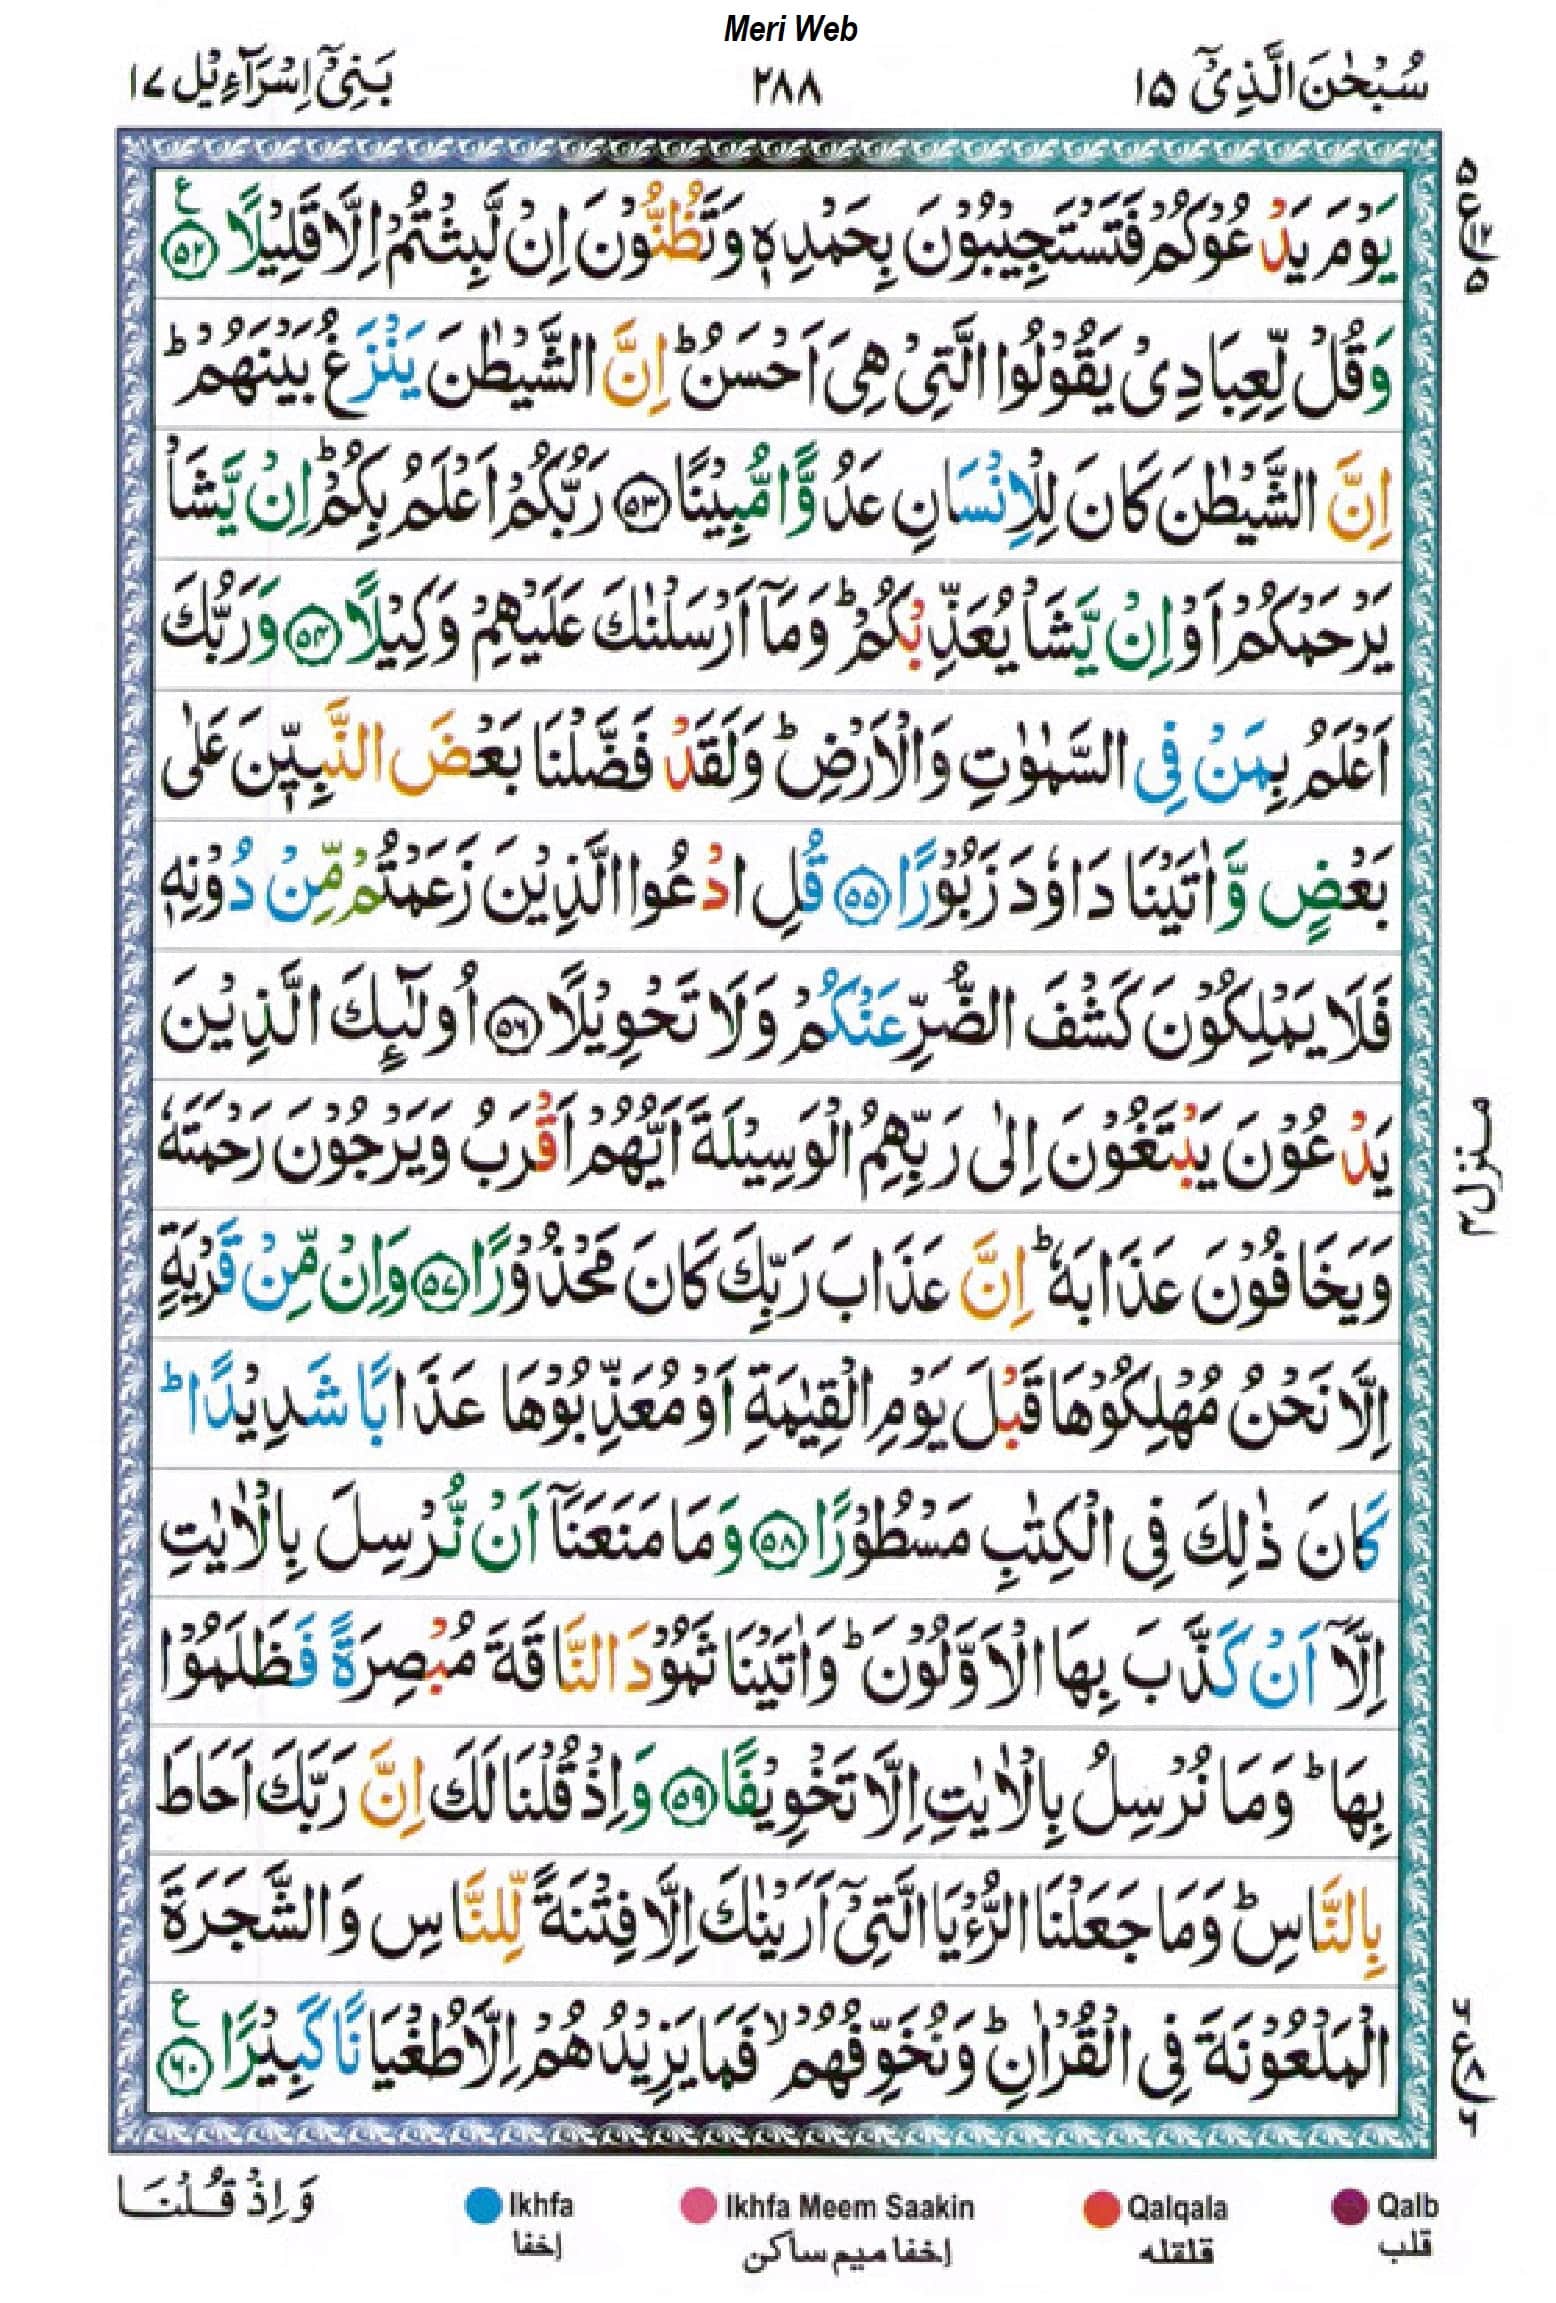 Meri Web
سُبْحٰنَ الَّذِیْۤ ۱۵
۲۸۸
بَنِیْۤ اِسْرَآءِیْل ۱۷
یَوْمَ یَدْعُوْكُمْ فَتَسْتَجِیْبُوْنَ بِحَمْدِهٖ وَتَظُنُّوْنَ اِنْ لَّبِثْتُمْ اِلَّا قَلِیْلًا ۵۲ ع
وَقُلْ لِّعِبَادِیْ یَقُوْلُوا الَّتِیْ هِیَ اَحْسَنُ ؕ اِنَّ الشَّیْطٰنَ یَنْزَغُ بَیْنَهُمْ ؕ
اِنَّ الشَّیْطٰنَ كَانَ لِلْاِنْسَانِ عَدُوًّا مُّبِیْنًا ۵۳ رَبُّكُمْ اَعْلَمُ بِكُمْ ؕ اِنْ یَّشَاْ
یَرْحَمْكُمْ اَوْ اِنْ یَّشَاْ یُعَذِّبْكُمْ ؕ وَمَاۤ اَرْسَلْنٰكَ عَلَیْهِمْ وَكِیْلًا ۵۴ وَرَبُّكَ
اَعْلَمُ بِمَنْ فِی السَّمٰوٰتِ وَالْاَرْضِ ؕ وَلَقَدْ فَضَّلْنَا بَعْضَ النَّبِیّٖنَ عَلٰی
بَعْضٍ وَّاٰتَیْنَا دَاوٗدَ زَبُوْرًا ۵۵ قُلِ ادْعُوا الَّذِیْنَ زَعَمْتُمْ مِّنْ دُوْنِهٖ
فَلَا یَمْلِكُوْنَ كَشْفَ الضُّرِّ عَنْكُمْ وَلَا تَحْوِیْلًا ۵۶ اُولٰٓىِٕكَ الَّذِیْنَ
یَدْعُوْنَ یَبْتَغُوْنَ اِلٰی رَبِّهِمُ الْوَسِیْلَةَ اَیُّهُمْ اَقْرَبُ وَیَرْجُوْنَ رَحْمَتَهٗ
وَیَخَافُوْنَ عَذَابَهٗ ؕ اِنَّ عَذَابَ رَبِّكَ كَانَ مَحْذُوْرًا ۵۷ وَاِنْ مِّنْ قَرْیَةٍ
اِلَّا نَحْنُ مُهْلِكُوْهَا قَبْلَ یَوْمِ الْقِیٰمَةِ اَوْ مُعَذِّبُوْهَا عَذَابًا شَدِیْدًا ؕ
كَانَ ذٰلِكَ فِی الْكِتٰبِ مَسْطُوْرًا ۵۸ وَمَا مَنَعَنَاۤ اَنْ نُّرْسِلَ بِالْاٰیٰتِ
اِلَّاۤ اَنْ كَذَّبَ بِهَا الْاَوَّلُوْنَ ؕ وَاٰتَیْنَا ثَمُوْدَ النَّاقَةَ مُبْصِرَةً فَظَلَمُوْا
بِهَا ؕ وَمَا نُرْسِلُ بِالْاٰیٰتِ اِلَّا تَخْوِیْفًا ۵۹ وَاِذْ قُلْنَا لَكَ اِنَّ رَبَّكَ اَحَاطَ
بِالنَّاسِ ؕ وَمَا جَعَلْنَا الرُّءْیَا الَّتِیْۤ اَرَیْنٰكَ اِلَّا فِتْنَةً لِّلنَّاسِ وَالشَّجَرَةَ
الْمَلْعُوْنَةَ فِی الْقُرْاٰنِ ؕ وَنُخَوِّفُهُمْ ۙ فَمَا یَزِیْدُهُمْ اِلَّا طُغْیَانًا كَبِیْرًا ۶۰ ع
۵ ع ۱۲ ۵
منزل ۴
۶ ع ۸ ۶
وَاِذْ قُلْنَا
Ikhfa
Ikhfa Meem Saakin
Qalqala
Qalb
إخفا
إخفا ميم ساكن
قلقله
قلب